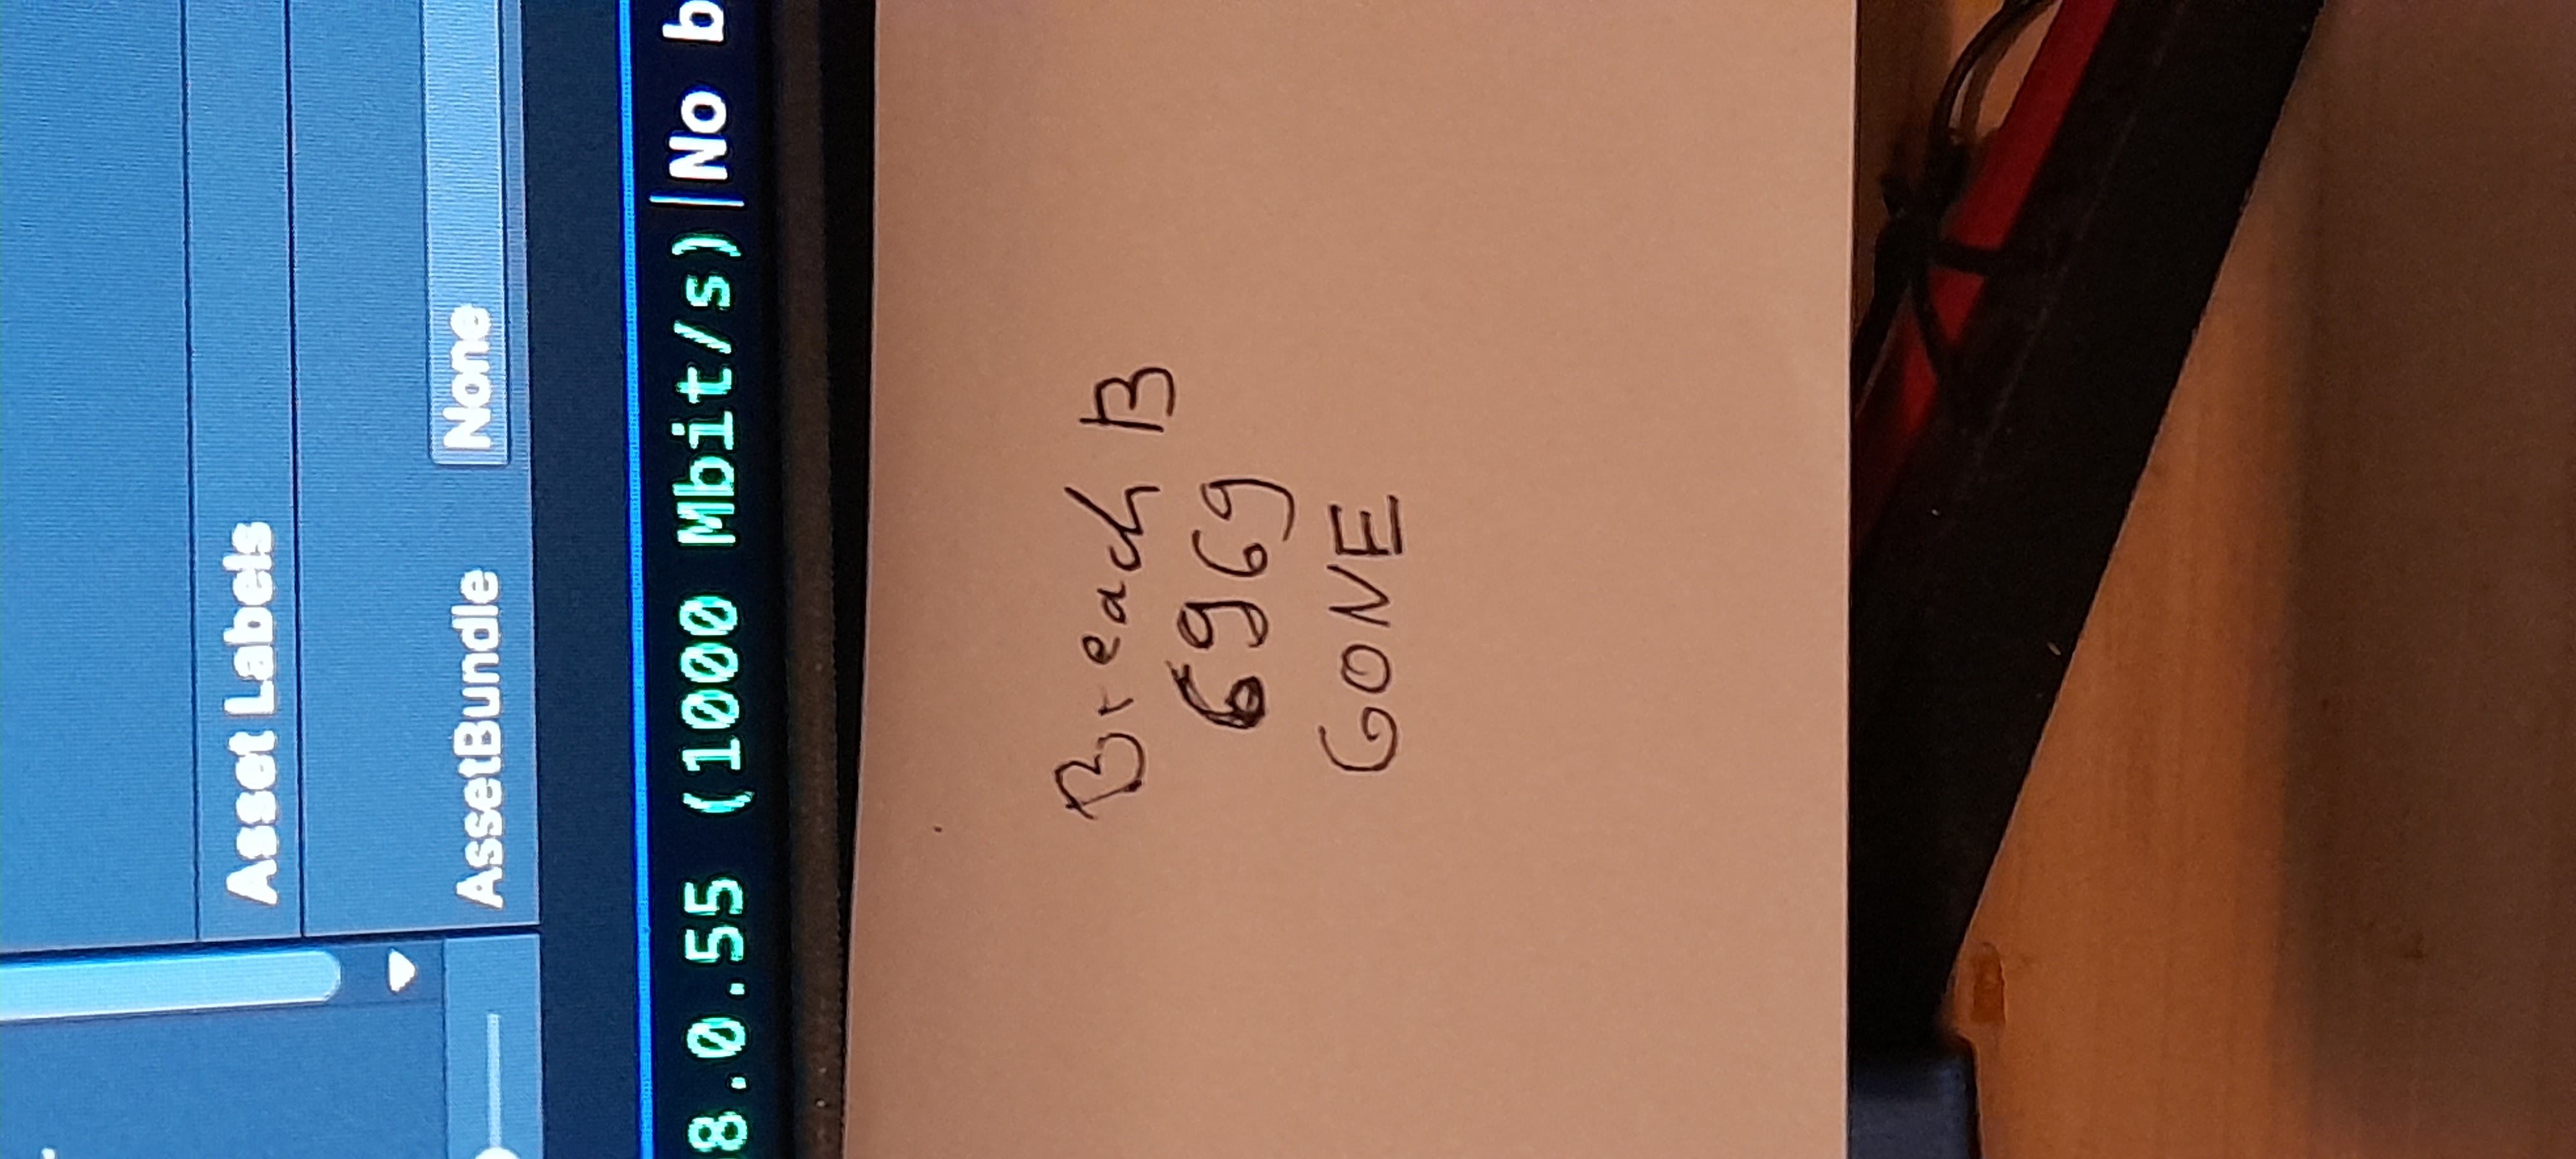 Asset Labels
AssetBundle None
8.0.55 (1000 Mbit/s)|No b
Breach B
6969
GONE